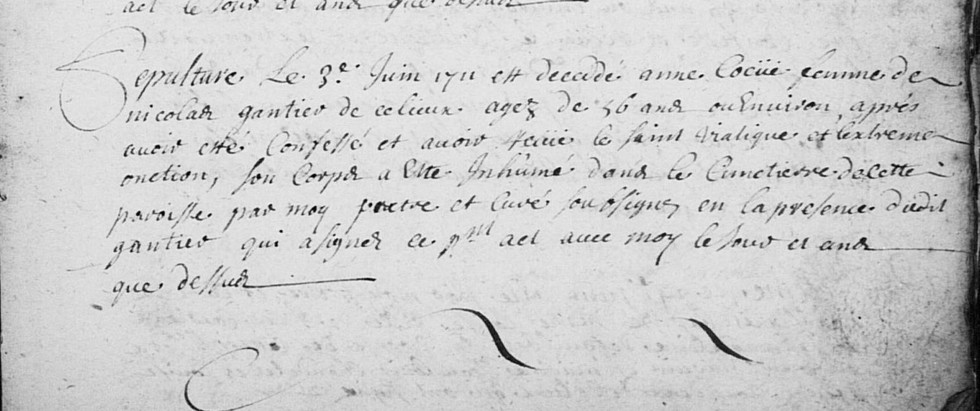 act le jour et and que dessus
Sepulture Le 3e. Juin 1711 est decedé anne Cocüe femme de
nicolas gantier de ce lieux agez de 56 and ou Environ aprés
avoir etté Confessé et avoir reçüe le saint viatique et l'extreme
onction, son Corps a Ette Inhumé dans le Cimetierre de cette
paroisse par moy pretre et Curé soubssignez en la presence dudit
gantier qui a signez ce pnt act avec moy le jour et and
que dessus